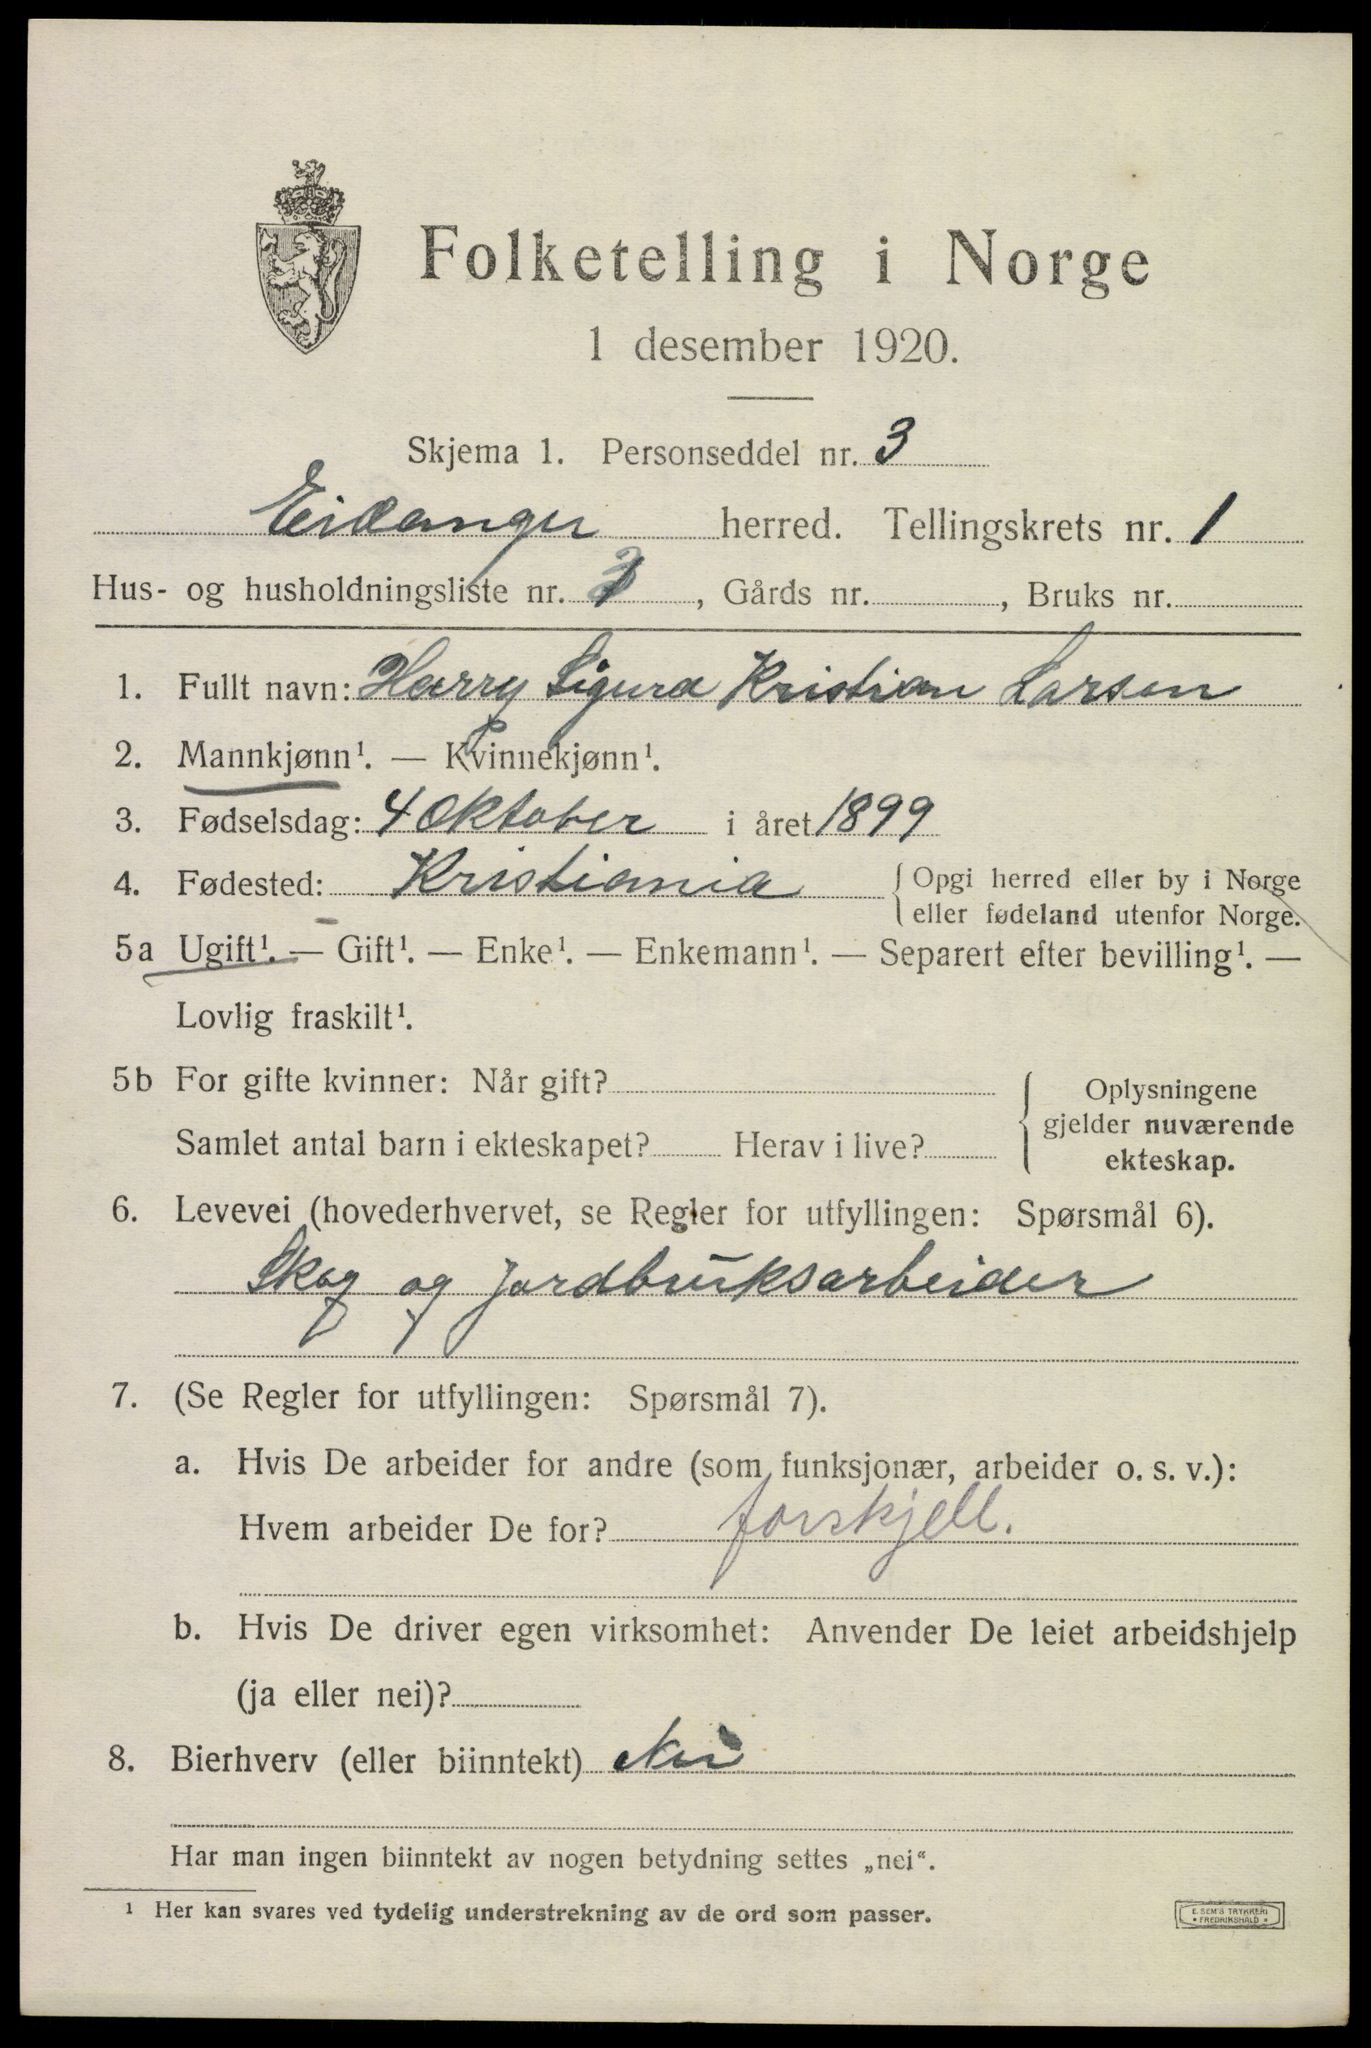 Folketelling i Norge
1 desember 1920.
Skjema 1. Personseddel nr. 3
Eidanger herred. Tellingskrets nr. 1
Hus- og husholdningsliste nr. , Gårds nr. , Bruks nr.
1. Fullt navn: Harry Sigurd Kristian Larsen
2. Mannkjønn¹. — Kvinnekjønn¹.
3. Fødselsdag: 4 Oktober i året 1899
4. Fødested: Kristiania { Opgi herred eller by i Norge
eller fødeland utenfor Norge.
5a Ugift¹. — Gift¹. — Enke¹. — Enkemann¹. — Separert efter bevilling¹. —
Lovlig fraskilt¹.
5b For gifte kvinner: Når gift?
Samlet antal barn i ekteskapet? Herav i live?
Oplysningene
gjelder nuværende
ekteskap.
6. Levevei (hovederhvervet, se Regler for utfyllingen: Spørsmål 6).
Skog og jordbruksarbeider
7. (Se Regler for utfyllingen: Spørsmål 7).
a. Hvis De arbeider for andre (som funksjonær, arbeider o. s. v.):
Hvem arbeider De for? forskjell.
b. Hvis De driver egen virksomhet: Anvender De leiet arbeidshjelp
(ja eller nei)?
8. Bierhverv (eller biinntekt) Nei
Har man ingen biinntekt av nogen betydning settes „nei“.
¹ Her kan svares ved tydelig understrekning av de ord som passer.
E. SEM'S TRYKKERI
• FREDRIKSHALD •